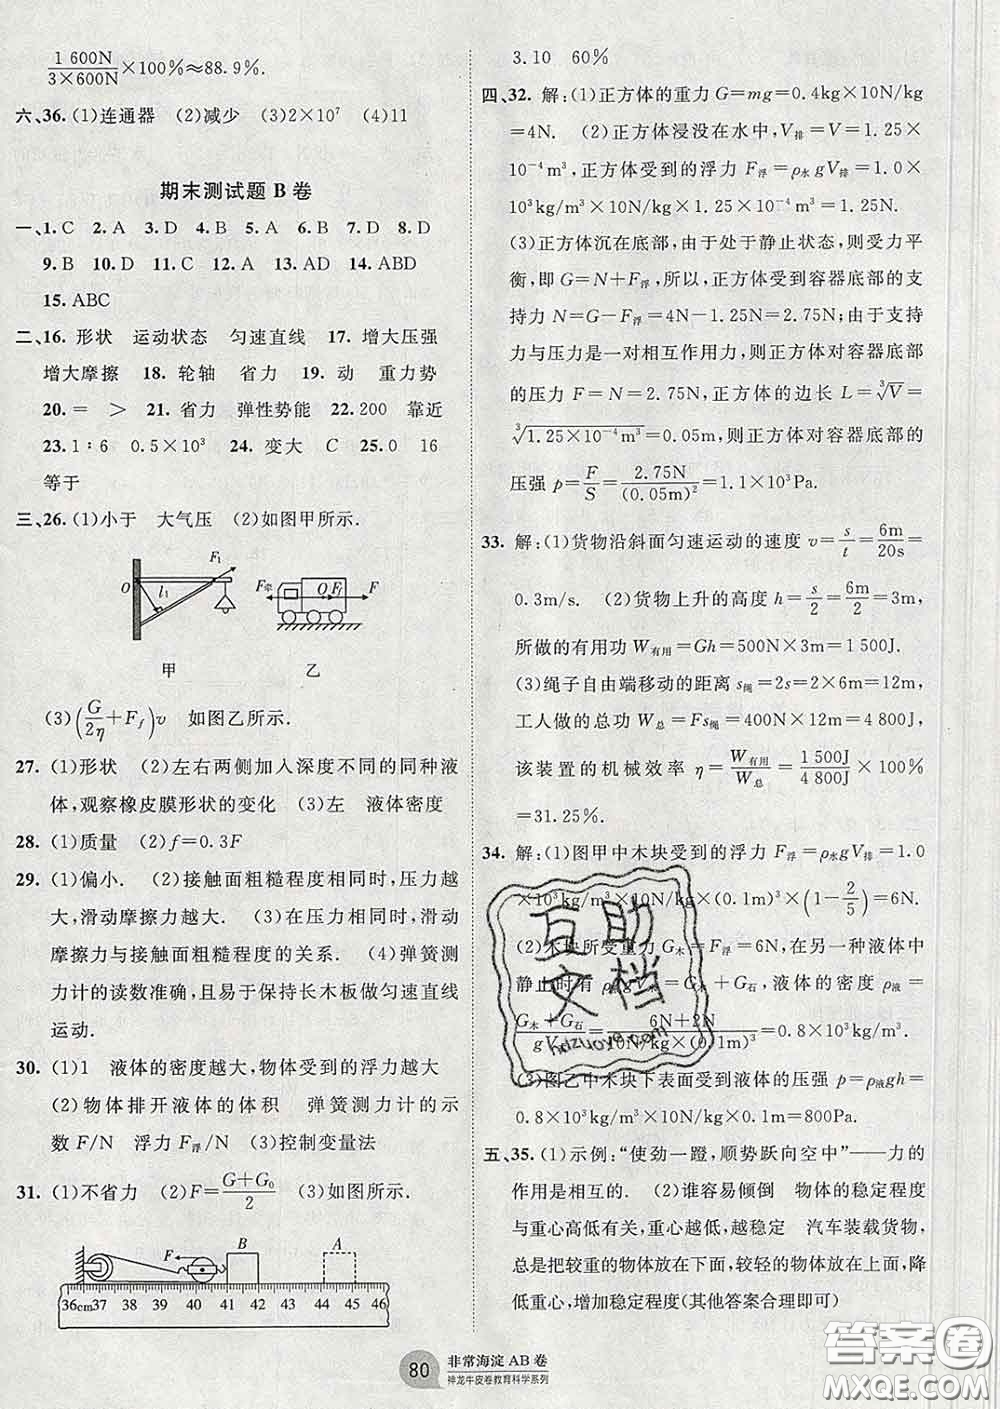 1 600N/3×600N×100%≈88.9%.
六、36.(1)连通器 (2)减少 (3)2×10⁷ (4)11
期末测试题 B 卷
一、1.C 2.A 3.D 4.B 5.A 6.B 7.D 8.D
9.B 10.D 11.C 12.A 13.AD 14.ABD
15.ABC
二、16. 形状 运动状态 匀速直线 17. 增大压强
增大摩擦 18. 轮轴 省力 19. 动 重力势
20.= > 21. 省力 弹性势能 22.200 靠近
23.1∶6 0.5×10³ 24. 变大 C 25.0 16
等于
三、26.(1)小于 大气压 (2)如图甲所示.
O l₁ F₁ F牵 O F_f F
甲 乙
(3)(G/2η+F_f)v 如图乙所示.
27. (1)形状 (2)左右两侧加入深度不同的同种液
体,观察橡皮膜形状的变化 (3)左 液体密度
28. (1)质量 (2)f=0.3F
29. (1)偏小. (2)接触面粗糙程度相同时,压力越
大,滑动摩擦力越大. (3)在压力相同时,滑动
摩擦力与接触面粗糙程度的关系. (4)弹簧测
力计的读数准确,且易于保持长木板做匀速直线
运动.
30. (1)1 液体的密度越大,物体受到的浮力越大
(2)物体排开液体的体积 弹簧测力计的示
数 F/N 浮力 F浮/N (3)控制变量法
31. (1)不省力 (2)F=G+G₀/2 (3)如图所示.
F B A
36cm 37 38 39 40 41 42 43 44 45 46
3.10 60%
四、32. 解:(1)正方体的重力 G=mg=0.4kg×10N/kg
=4N. (2)正方体浸没在水中,V排=V=1.25×
10⁻⁴m³,正方体受到的浮力 F浮=ρ水gV排=1.0×
10³kg/m³×10N/kg×1.25×10⁻⁴m³=1.25N.
(3)正方体沉在底部,由于处于静止状态,则受力平
衡,即 G=N+F浮,所以,正方体受到容器底部的支
持力 N=G-F浮=4N-1.25N=2.75N;由于支持
力与压力是一对相互作用力,则正方体对容器底部
的压力 F=N=2.75N,正方体的边长 L=∛V=
∛1.25×10⁻⁴m³=0.05m,则正方体对容器底部的
压强 p=F/S=2.75N/(0.05m)²=1.1×10³Pa.
33. 解:(1)货物沿斜面匀速运动的速度 v=s/t=6m/20s=
0.3m/s. (2)货物上升的高度 h=s/2=6m/2=3m,
所做的有用功 W有用=Gh=500N×3m=1 500J.
(3)绳子自由端移动的距离 s绳=2s=2×6m=12m,
工人做的总功 W总=Fs绳=400N×12m=4 800J,
该装置的机械效率 η=W有用/W总=1 500J/4 800J×100%
=31.25%.
34. 解:(1)图甲中木块受到的浮力 F浮=ρ水gV排=1.0
×10³kg/m³×10N/kg×(0.1m)³×(1-2/5)=6N.
(2)木块所受重力 G木=F浮=6N,在另一种液体中
静止时有 ρ液gV木=G木+G石,液体的密度 ρ液=
G木+G石/gV木=6N+2N/10N/kg×(0.1m)³=0.8×10³kg/m³.
(3)图乙中木块下表面受到液体的压强 p=ρ液gh=
0.8×10³kg/m³×10N/kg×0.1m=800Pa.
五、35. (1)示例:“使劲一蹬,顺势跃向空中”——力的
作用是相互的. (2)谁容易倾倒 物体的稳定程度
与重心高低有关,重心越低,越稳定 汽车装载货物,
总是把较重的物体放在下面,较轻的物体放在上面,降
低重心,增加稳定程度(其他答案合理即可)
互助
文档
hdzuoye.com
80 非常海淀 AB 卷
神龙牛皮卷教育科学系列
答案卷
MXQE.COM